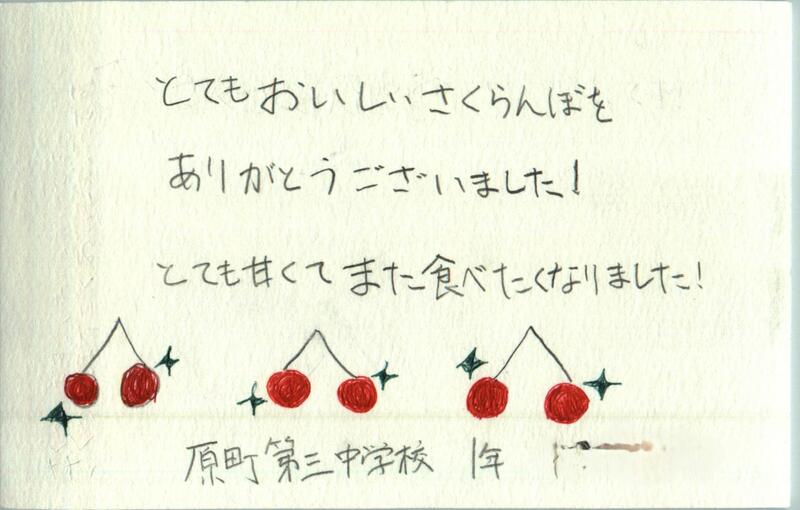 とてもおいしいさくらんぼを
ありがとうございました!
とても甘くてまた食べたくなりました!
原町第三中学校 1年